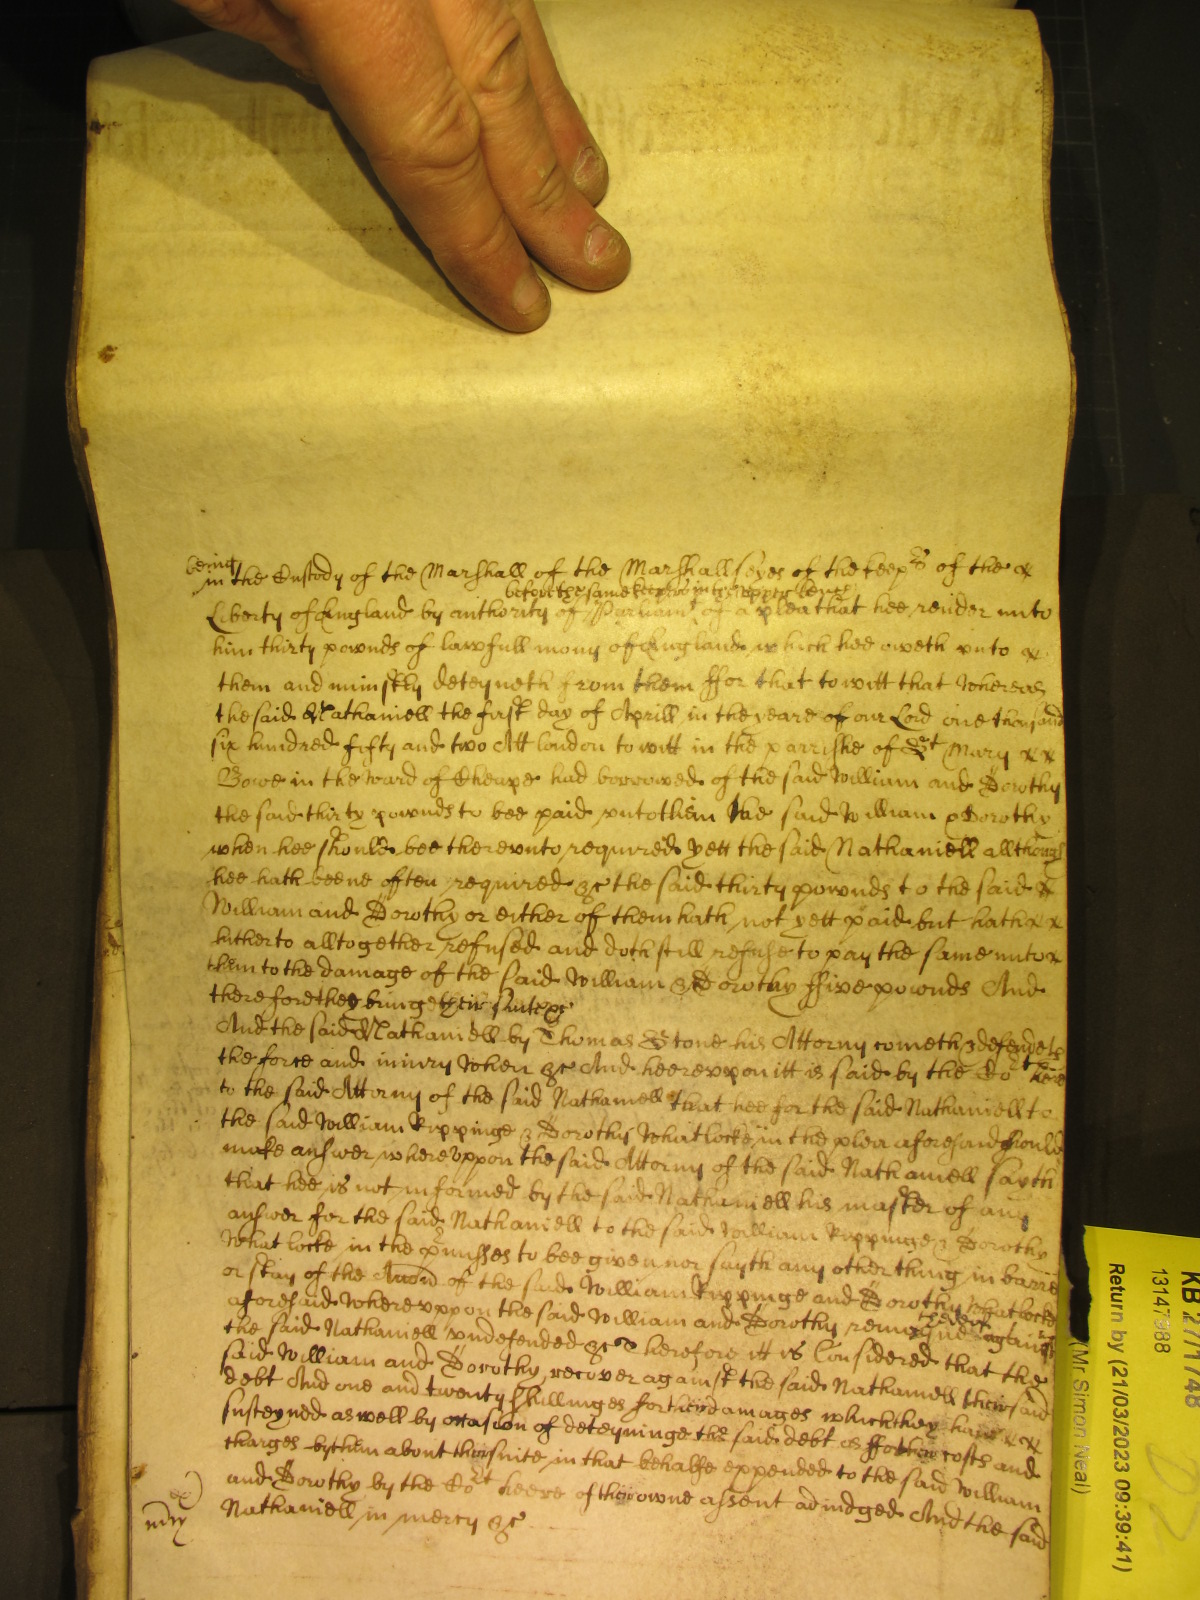 being
in the Custody of the Marshall of the Marshallseyes of the keeprs of the x
before the same keeprs in the upper bench
Liberty of England by authority of Parliamt of a plea that hee render unto
him thirty pownds of lawfull mony of England which hee oweth vnto x
them and uniustly deteyneth from them ffor that to witt that Whereas
the said Nathaniell the first day of Aprill in the yeare of our Lord one thousand
six hundred fifty and two Att london to witt in the parrishe of St Mary x x
Bowe in the ward of Cheape had borrowed of the said William and Dorothy
the said thirty pownds to bee paid vnto them the said William & Dorothy
when hee should bee therevnto requirred yett the said Nathaniell allthough
hee hath beene often required &c the said thirty pownds to the said x
William and Dorothy or either of them hath not yett paid but hath x x
hitherto alltogether refused and doth still refuse to pay the same unto x
them to the damage of the said William & Dorothy ffive pownds And
therefore they bringe their suite &c
And the said Nathaniell by Thomas Stone his Attorny cometh & defendeth
the force and iniury When &c And heerevpon itt is said by the Cot heere
to the said Attorny of the said Nathaniell that hee for the said Nathaniell to
the said William Rippinge & Dorothy Whatlocke in the plea aforesaid should
make answer wherevppon the said Attorny of the said Nathaniell sayth
that hee is not informed by the said Nathaniell his master of any
answer for the said Nathaniell to the said William Rippinge & Dorothy
Whatlocke in the pmisses to bee given nor sayth any other thing in barre
or stay of the Accon of the said William Rippinge and Dorothy Whatlocke
aforesaid Wherevppon the said William and Dorothy remayne against
thereof
the said Nathaniell vndefended &c Therefore itt is Considered that the
said William and Dorothy recover against the said Nathaniell their said
debt And one and twenty shillinges for their damages which they have x x
susteyned as well by occasion of deteyninge the said debt as ffor their costs and
charges by them about their suite in that behalfe expended to the said William
and Dorothy by the Cort heere of their owne assent adiudged And the said
Nathaniell in mercy &c
KB 27/1748
13147988
Return by (21/03/2023 09:39:41)
(Mr. Simon Neal)